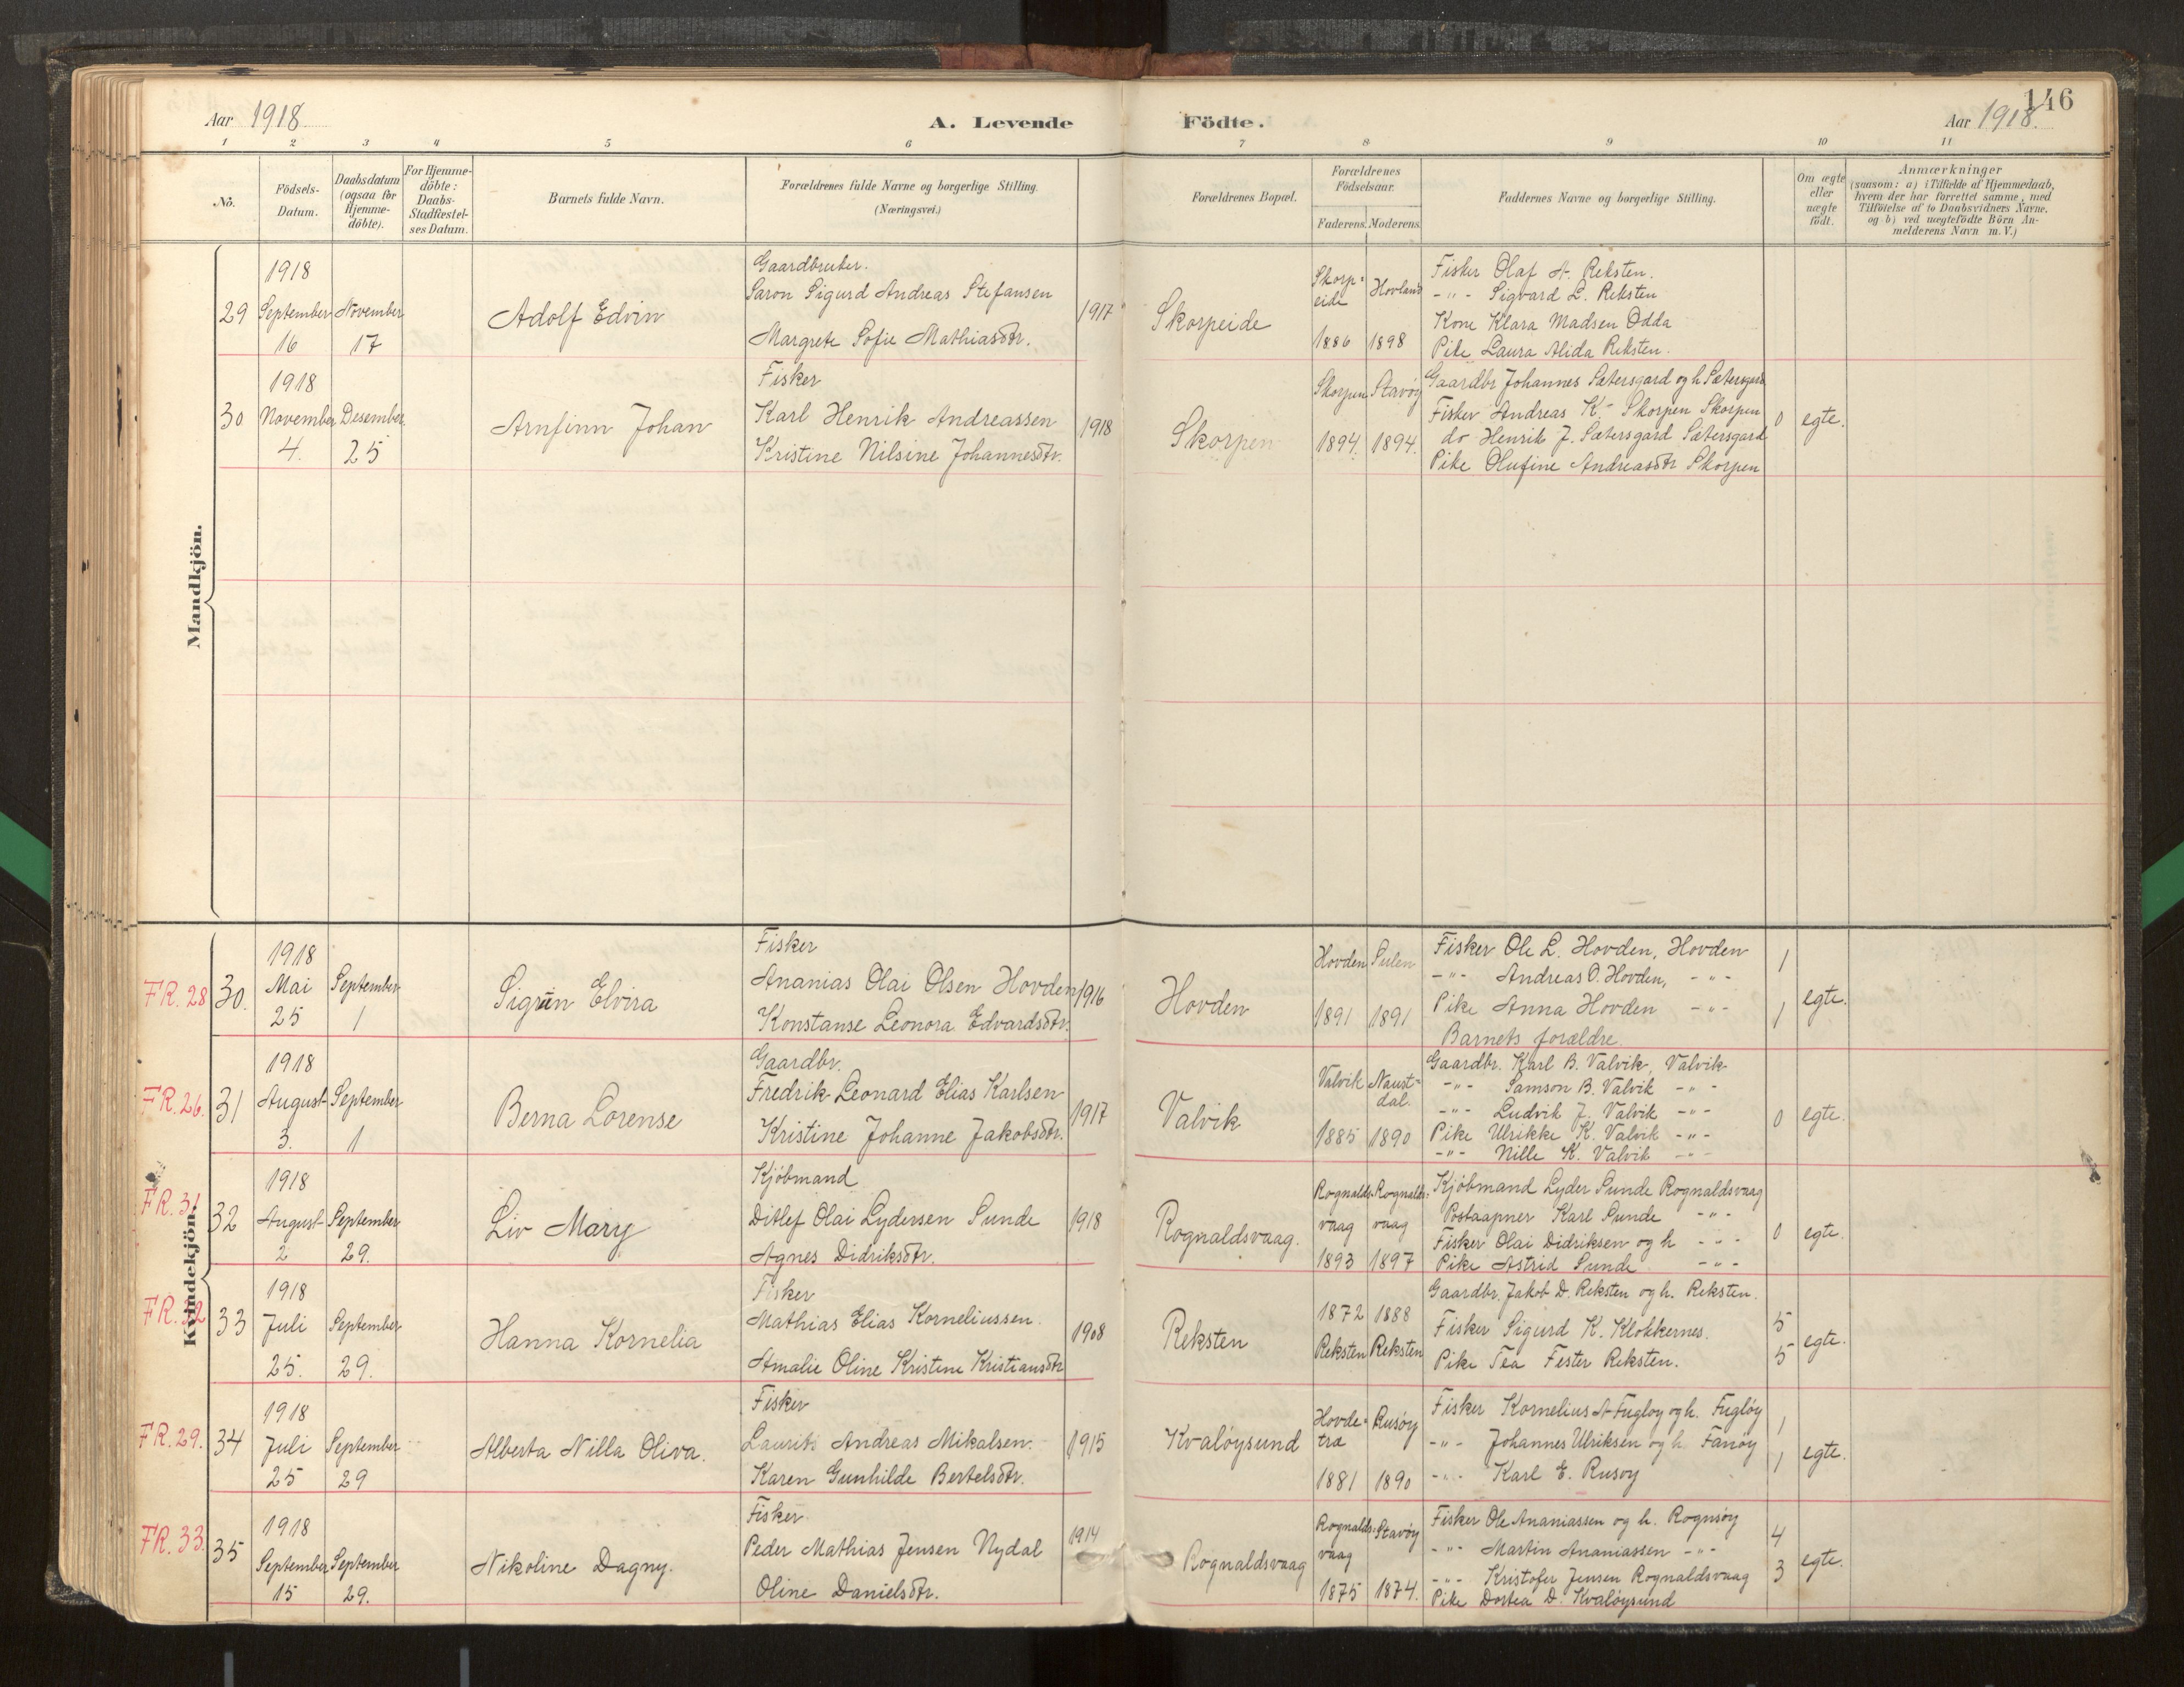 Aar 1918
A. Levende
Födte.
Aar 1918.
146
1 2 3 4 5 6 7 8 9 10 11
No.
Födsels-
Datum.
Daabsdatum
(ogsaa for
Hjemme-
döbte).
For Hjemme-
döbte:
Daabs-
Stadfæstel-
ses Datum.
Barnets fulde Navn.
Forældrenes fulde Navne og borgerlige Stilling.
(Næringsvei.)
Forældrenes Bopæl.
Forældrenes
Födselsaar.
Faderens. Moderens.
Faddernes Navne og borgerlige Stilling.
Om ægte
eller
uægte
födt.
Anmærkninger
(saasom: a) i Tilfælde af Hjemmedaab,
hvem der har forrettet samme, med
Tilföielse af to Daabsvidners Navne.
og b) ved uægtefödte Börn An-
melderens Navn m. V.)
Mandkjön.
29
1918
September
16
November
17
Adolf Edvin
Gaardbruker.
Saron Sigurd Andreas Stefansen
Margrete Sofie Mathiasdtr.
1917
Skorpeide
Skorp-
eide
1886
Hovland
1898
Fisker Olaf A. Reksten.
-"- Sigvard L. Reksten
Kone Klara Madsen Odda
Pike Laura Alida Reksten.
30
1918
November
4.
Desember
25
Arnfinn Johan
Fisker
Karl Henrik Andreassen
Kristine Nilsine Johannesdtr.
1918
Skorpen
Skorpen
1894.
Stavøy
1894.
Gaardbr. Johannes Sætersgard og h. Sætersgard
Fisker Andreas K. Skorpen Skorpen
do Henrik J. Sætersgard Sætersgard
Pike Olufine Andreasdtr Skorpen
0
egte.
Kvindekjön.
FR. 28
30.
1918
Mai
25
September
1
Sigrun Elvira
Fisker
Ananias Olai Olsen Hovden
Konstanse Leonora Edvardsdtr.
1916
Hovden
Hovden
1891
Sulen
1891
Fisker Ole L. Hovden, Hovden
-"- Andreas O. Hovden, -"-
Pike Anna Hovden -"-
Barnets forældre.
1
1
egte.
FR. 26.
31
1918
August
3.
September
1
Berna Lorense
Gaardbr.
Fredrik Leonard Elias Karlsen
Kristine Johanne Jakobsdtr.
1917
Valvik
Valvik
1885
Naust-
dal.
1890
Gaardbr. Karl B. Valvik, Valvik
-"- Samson B. Valvik -"-
-"- Ludvik J. Valvik -"-
Pike Ulrikke K. Valvik -"-
-"- Nille K. Valvik -"-
0
egte.
FR. 31
32
1918
August
2
September
29.
Liv Mary
Kjöbmand
Ditlef Olai Lydersen Sunde
Agnes Didriksdtr.
1918
Rognaldsvaag.
Rognalds-
vaag
1893
Rognalds-
vaag
1897
Kjöbmand Lyder Sunde Rognaldsvaag
Postaapner Karl Sunde -"-
Fisker Olai Didriksen og h -"-
Pike Astrid Sunde -"-
0
egte.
FR. 32
33
1918
Juli
25.
September
29.
Hanna Kornelia
Fisker
Mathias Elias Korneliussen.
Amalie Oline Kristine Kristiansdtr
1908
Reksten
1872
Reksten
1888
Reksten
Gaardbr. Jakob D. Reksten og h. Reksten.
Fisker Sigurd K. Klokkernes.
Pike Tea Fester Reksten.
5
5
egte.
FR. 29.
34
1918
Juli
25
September
29
Alberta Nilla Oliva.
Fisker
Laurits Andreas Mikalsen.
Karen Gunhilde Bertelsdtr.
1915
Kvaløysund
Hovde-
træ
1881
Rusøy
1890
Fisker Kornelius A Fugløy og h. Fugløy
-"- Johannes Ulriksen og h. Fanøy
-"- Karl E. Rusøy
1
1
egte.
FR. 33.
35
1918
September
15
September
29.
Nikoline Dagny.
Fisker
Peder Mathias Jensen Nydal
Oline Danielsdtr.
1914
Rognaldsvaag
Rognalds-
vaag
1875
Stavøy
1874.
Fisker Ole Ananiassen og h. Rognsøy
-"- Martin Ananiassen -"-
-"- Kristofer Jensen Rognaldsvaag
Pike Dortea D. Kvaløysund
4
3
egte.